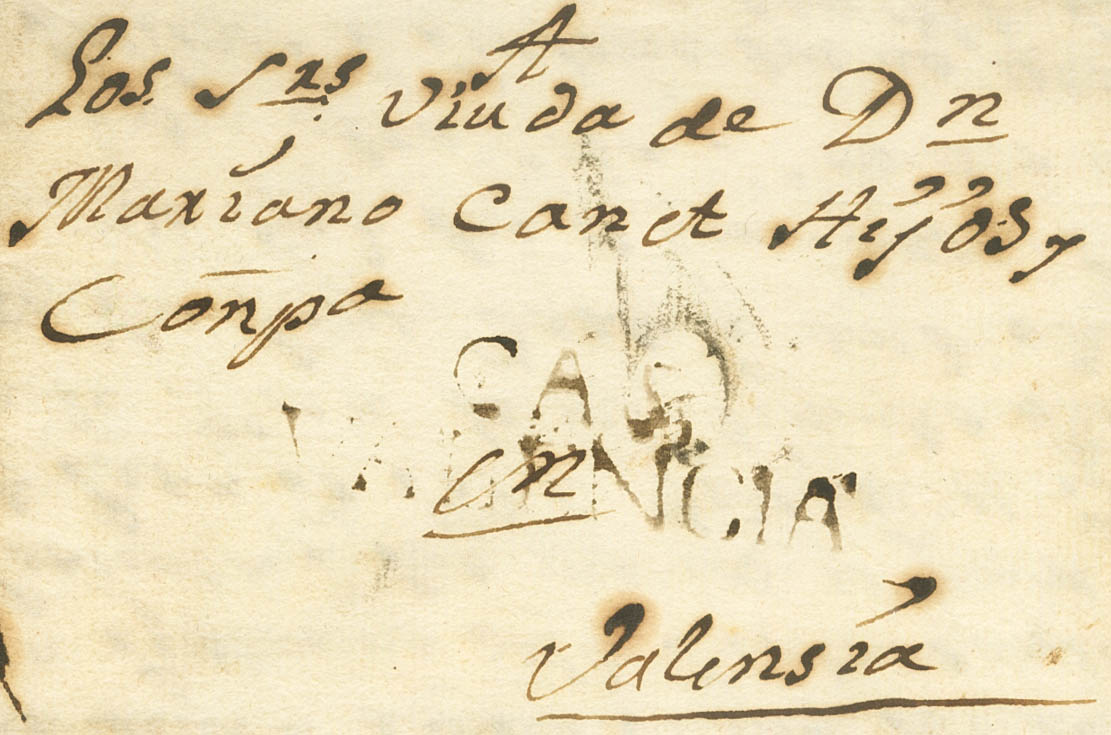 A
Los Srs Viuda de Dn
Mariano Canet Hijos y
Compa
CAS
VALENCIA
en
Valensia